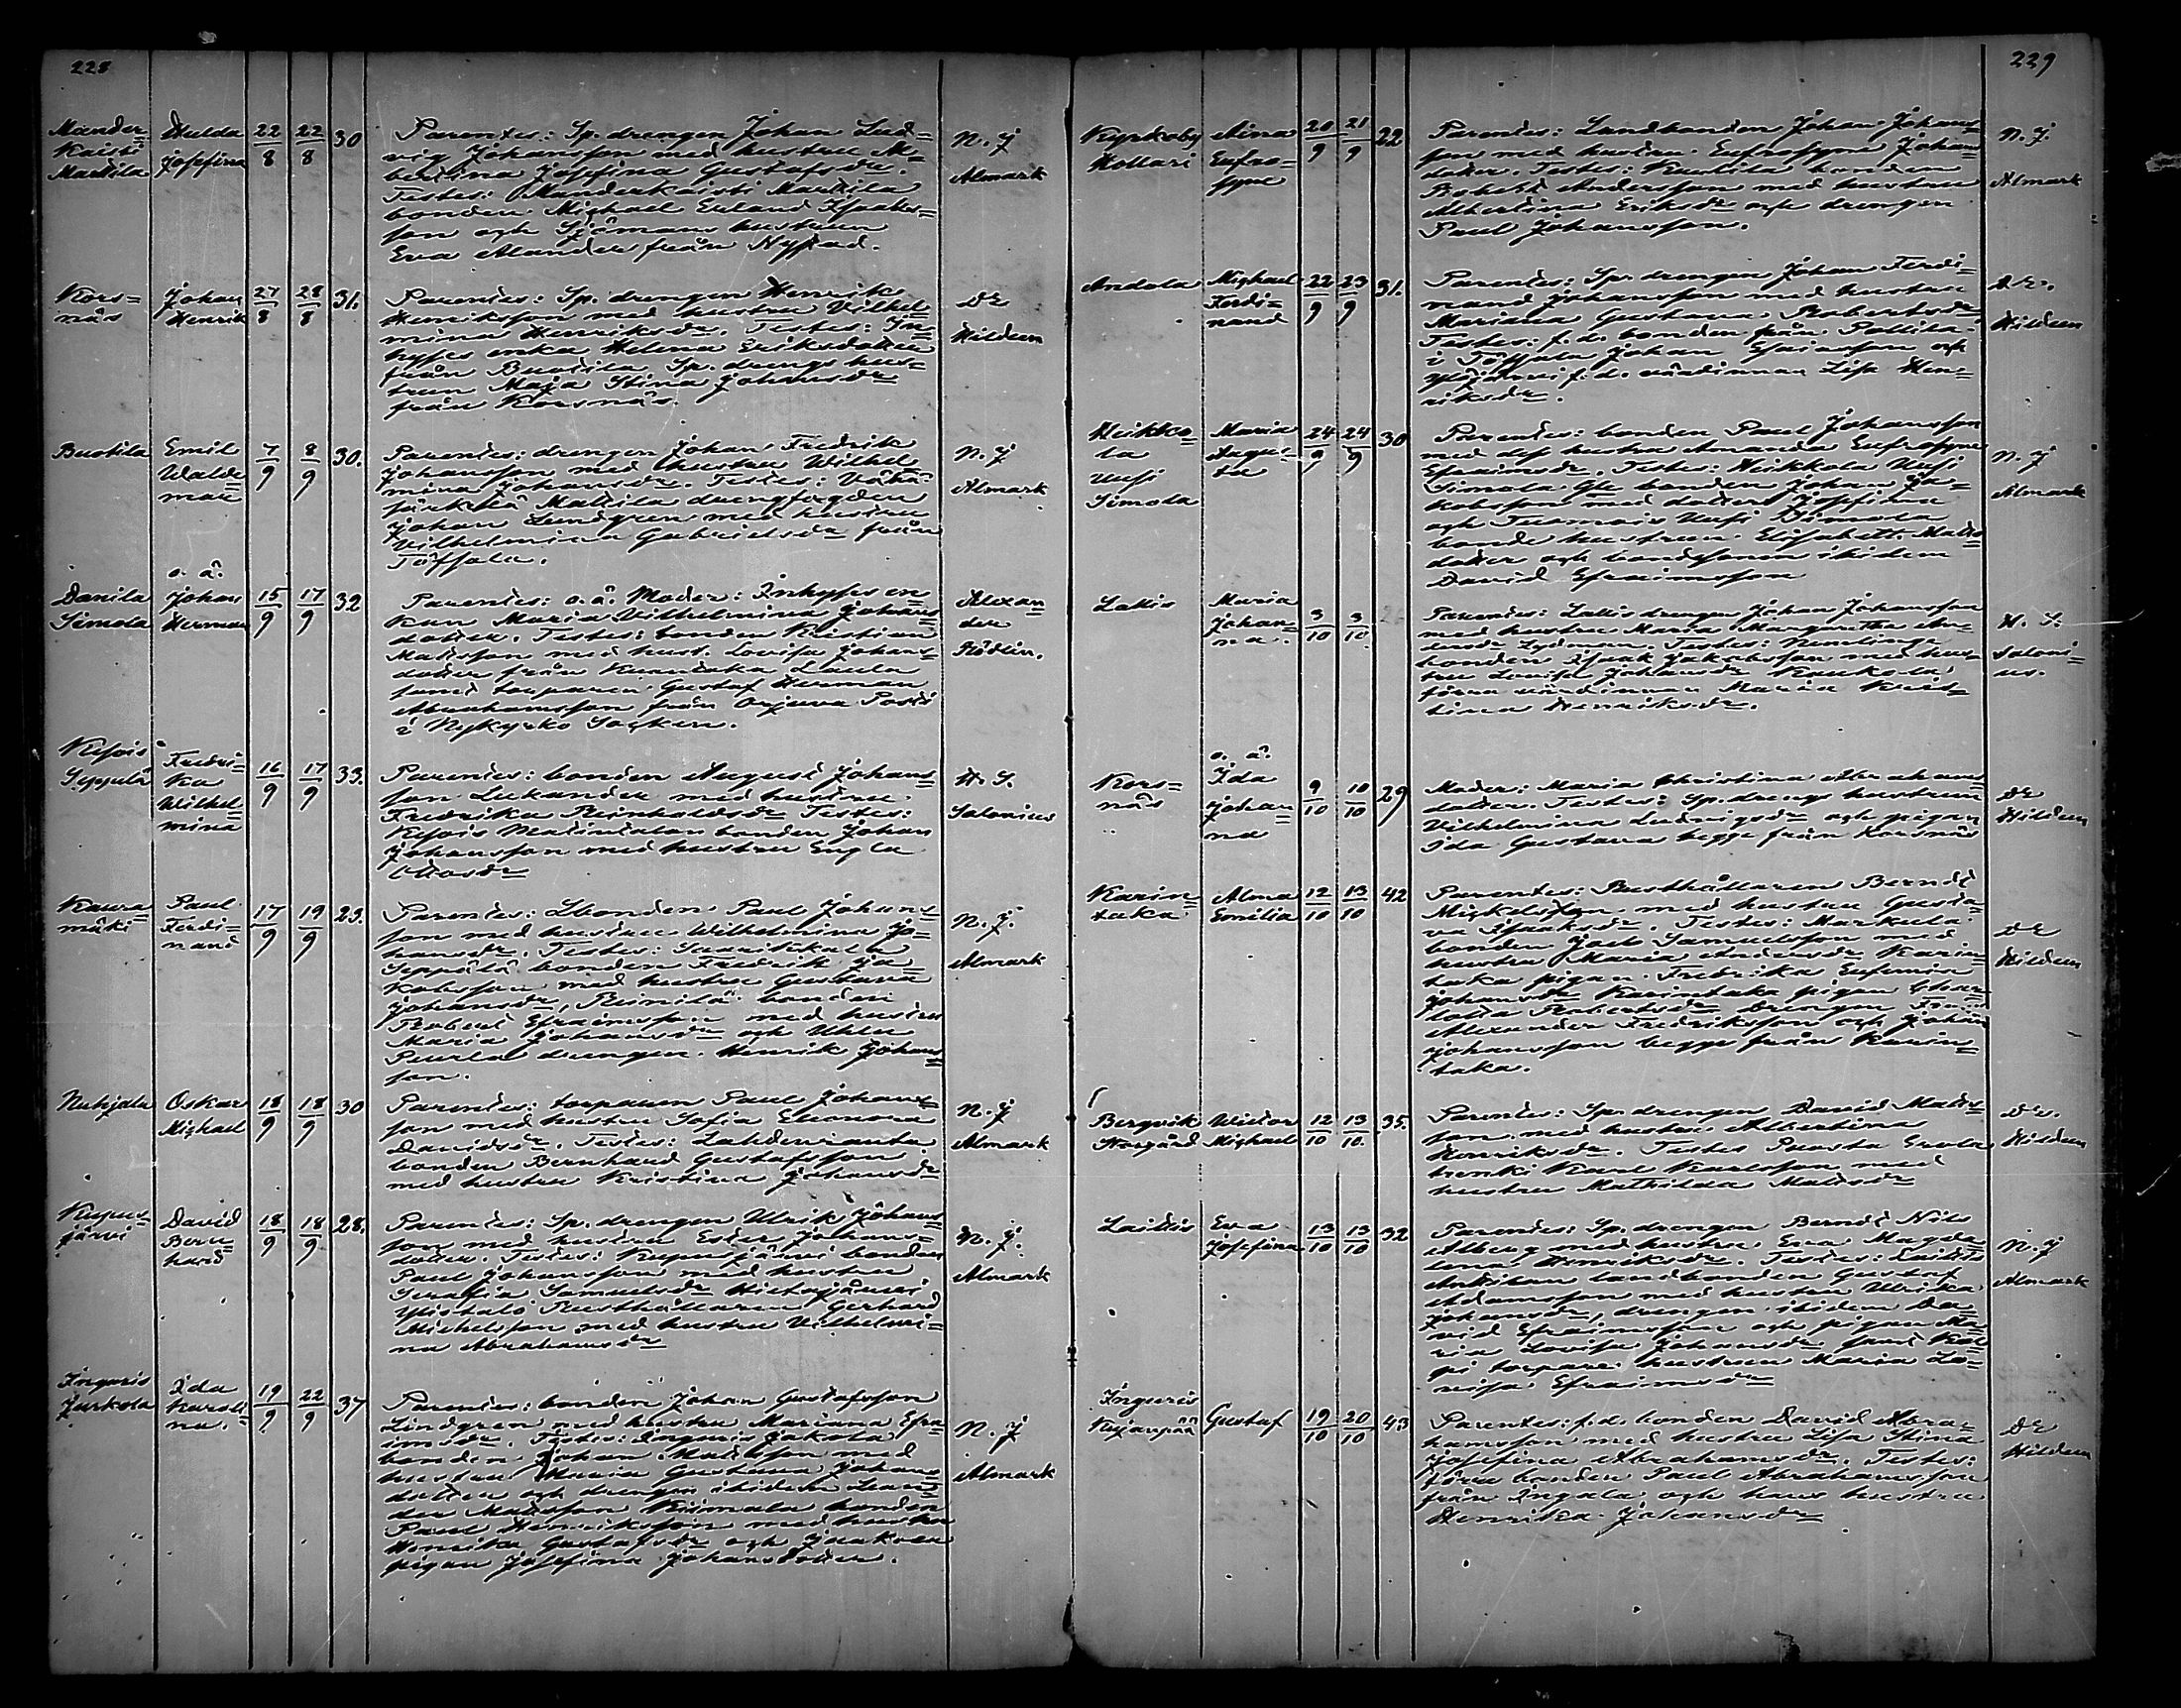 228
Mander=
kaisti
Marttila
Hulda
Josefina
22/8 22/8 30
Parentes: Sp. drengen Johan Lud=
vig Johansson med hustru Al=
bertina Josefina Gustafsdr.
Testes: Manderkaisti Marttila
bonden Michael Erland Isaaks=
son och Sjömans hustrun
Eva Mander från Nystad.
N. J
Almark
Kors=
näs
Johan
Henrik
27/8 28/8 31.
Parentes: Sp. drengen Henrik
Henriksson med hustru Vilhel=
mina Henriksdr. Testes: In=
hyses enka Helena Eriksdotter
från Bustila Sp. drengs hus=
trun Maja Stina Johansdr
från Korsnäs.
DE
Hildeen
Bustila
Emil
Walde=
mar
7/9 8/9 30.
Parentes: drengen Johan Fredrik
Johansson med hustru Wilhel=
mina Johansdr. Testes: Vähä=
järkkä Mattila drengfogden
Johan Lundgren med hustru
Vilhelmina Gabrielsdr från
Töfsala.
N. J
Almark
Danila
Simola
o. ä.
Johan
Herman
15/9 17/9 32
Parentes: o.ä. Moder: Inhyses en=
kan Maria Vilhelmina Johans=
dotter. Testes: bonden Kristian
Matsson med hust. Lovisa Johans=
dotter från Laula
samt torparen Gustaf Herman
Abrahamsson från
i Nykyrko Socken.
Alexan=
der
Rödlin.
Seppälä
Fredri=
ka
Wilhel=
mina
16/9 17/9 33.
Parentes: bonden August Johans=
son Lukander med hustru
Fredrika Reinholdsdr Testes:
bonden Johan
Johansson med hustru Engla
Ottosdr
H. S.
Salonius
Kaura=
mäki
Paul
Ferdi=
nand
17/9 19/9 23.
Parentes: Lbonden Paul Johans=
son med hustru Wilhelmina Jo=
hansdr. Testes:
Seppälä bonden Fredrik Ja=
kobsson med hustru Gustava
Johansdr, bonden
Robert Efraimsson med hustru
Maria Johansdr och
drengen Henrik Johans=
son.
N. J.
Almark
Nuhjala
Oskar
Michael
18/9 18/9 30
Parentes: torparen Paul Johans=
son med hustru Sofia Eleonora
Davidsdr. Testes: Lahdenranta
bonden Bernhard Gustafsson
med hustru Kristina Johansdr
N. J
Almark
Kupus=
järvi
David
Bern=
hard
18/9 18/9 28.
Parentes: Sp. drengen Ulrik Johans=
son med hustru Ester Johans=
dotter. Testes: Kupusjärvi bonden
Paul Johansson med hustru
Serafia Samuelsdr Hietajärvi
Ylistalo Rusthållaren Gerhard
Michelsson med hustru Vilhelmi=
na Abrahamsdr
N. J.
Almark
Inguris
Jurkola
Ida
Karoli=
na.
19/9 22/9 37
Parentes: bonden Johan Gustafsson
Lindgren med hustru Mariana Efra=
imsdr. Testes: Inguris Jakola
bonden Johan Matsson med
hustru Maria Gustava Johans=
dotter och drengen ibidem Lean=
der Matsson Kiimala bonden
Paul Henriksson med hustru
Henrika Gustafsdr och Jaakola
pigan Josefina Johansdotter.
N. J
Almark
229
Kyrkoby
Hollari
Aina
Eufro=
syne
20/9 21/9 22
Parentes: Landbonden Johan Johans=
son med hustru Eufrosyne Johans=
dotter. Testes: bonden
Robert Andersson med hustru
Albertina Eriksdr och drengen
Paul Johansson.
N. J.
Almark
Andola
Michael
Ferdi=
nand
22/9 23/9 31.
Parentes: Sp. drengen Johan Ferdi=
nand Johansson med hustru
Mariana Gustava Robertsdr
Testes: f. d. bonden från Pollila
i Töfsala Johan Esaiasson och
f. d. värdinnan Lisa Hen=
riksdr.
DE.
Hildeen
Heikko=
la
Uusi
Simola
Maria
Augus=
ta
24/9 24/9 30
Parentes: bonden Paul Johansson
med dess hustru Amanda Eufrosyne
Efraimsdr. Testes: Heikkola Uusi
Simola bonden Johan Ja=
kobsson med dotter Josefina
och Tuomois Uusi Simola
bonde hustrun Elisabeth Mats=
dotter och bondesonen ibidem
David Efraimsson
N. J
Almark
Lallis
Maria
Johan=
na.
3/10 3/10
Parentes: Lallis drengen Johan Johansson
med hustru Maria Margaretha An=
dersdr Lydman. Testes:
bonden Isaak Jakobsson med hus=
tru Lovisa Johansdr Kaukola
förra värdinnan Maria Kris=
tina Henriksdr.
H. S.
Saloni=
us.
Kors=
näs
o. ä.
Ida
Johan=
na
9/10 10/10 29
Moder: Maria Christina Abrahams=
dotter. Testes: Sp. drengs hustrun
Vilhelmina Ludvigsdr och pigan
Ida Gustava begge från Korsnäs
DE
Hildeen
Karin=
taka
Alma
Emilia
12/10 13/10 42
Parentes: Rusthållaren Berndt
Mickelsson med hustru Gusta=
va Isaaksdr. Testes: Markula
bonden Joel Samuelsson med
hustru Maria Andersdr Karin=
taka pigan Fredrika Eufemia
Johansdr Karintaka pigan Char=
lotta Robertsdr drengen Frans
Alexander Fredriksson och Johan
Johansson begge från Karin=
taka.
DE
Hildeen
Bergvik
Norgård
Wictor
Michael
12/10 13/10 35.
Parentes: Sp. drengen David Mats=
son med hustru Albertina
Henriksdr. Testes
Karl Karlsson med
hustru Mathilda Matsdr
DE.
Hildeen
Laittis
Eva
Josefina
13/10 13/10 32
Parentes: Sp. drengen Berndt Nils
Alberg med hustru Eva Magda=
lena Henriksdr. Testes: Laittis
Anttilan landbonden Gustaf
Adamsson med hustru Ulrika
Johansdr, drengen ibidem Da=
vid Efraimsson och pigan Ma=
ria Lovisa Johansdr samt
torpare hustrun Maria Lo=
visa Efraimsdr
N. J
Almark
Inguris
Gustaf
19/10 20/10 43
Parentes: f. d. bonden David Abra=
hamsson med hustru Lisa Stina
Josefina Abrahamsdr. Testes:
förra bonden Paul Abrahamsson
från Ingala och hans hustru
Henrika Johansdr
DE
Hildeen